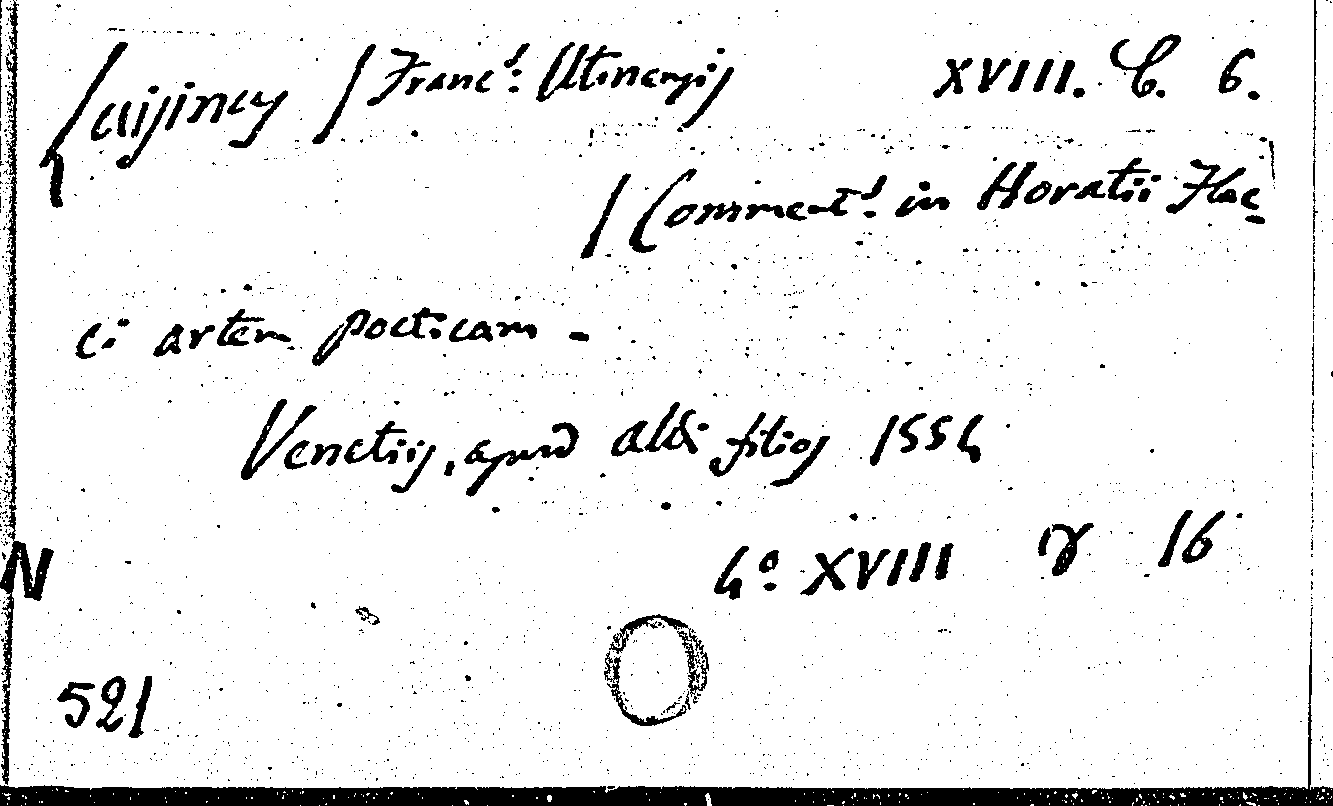 Luisinus / Franc.s: Utinensis XVIII. C. 6.
/ Comment.s: in Horatii Flac-
ci artem poeticam -
Venetiis, apud Aldi filios 1554
4° XVIII γ 16
N
521